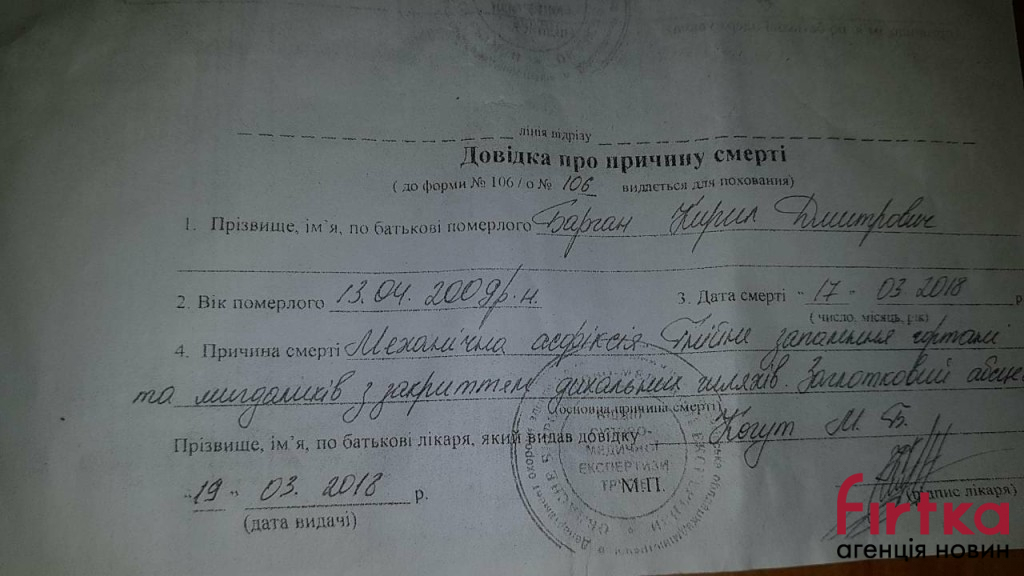 лінія відрізу
Довідка про причину смерті
( до форми № 106 / о № 106 видається для поховання)
1. Прізвище, ім'я, по батькові померлого Барган Кирил Дмитрович
2. Вік померлого 13.04.2009р.н.
3. Дата смерті "17" 03 2018 р
( число, місяць, рік)
4. Причина смерті Механічна асфіксія. Гнійне запалення гортані
та мигдаликів з закриттям дихальних шляхів. Заглотковий абсце
(основна причина смерті)
Прізвище, ім'я, по батькові лікаря, який видав довідку Когут М. Б.
МЕДИЧНОЇ
ЕКСПЕРТИЗИ
М.П.
"19" 03. 2018 р.
(підпис лікаря)
(дата видачі)
firtka
агенція новин